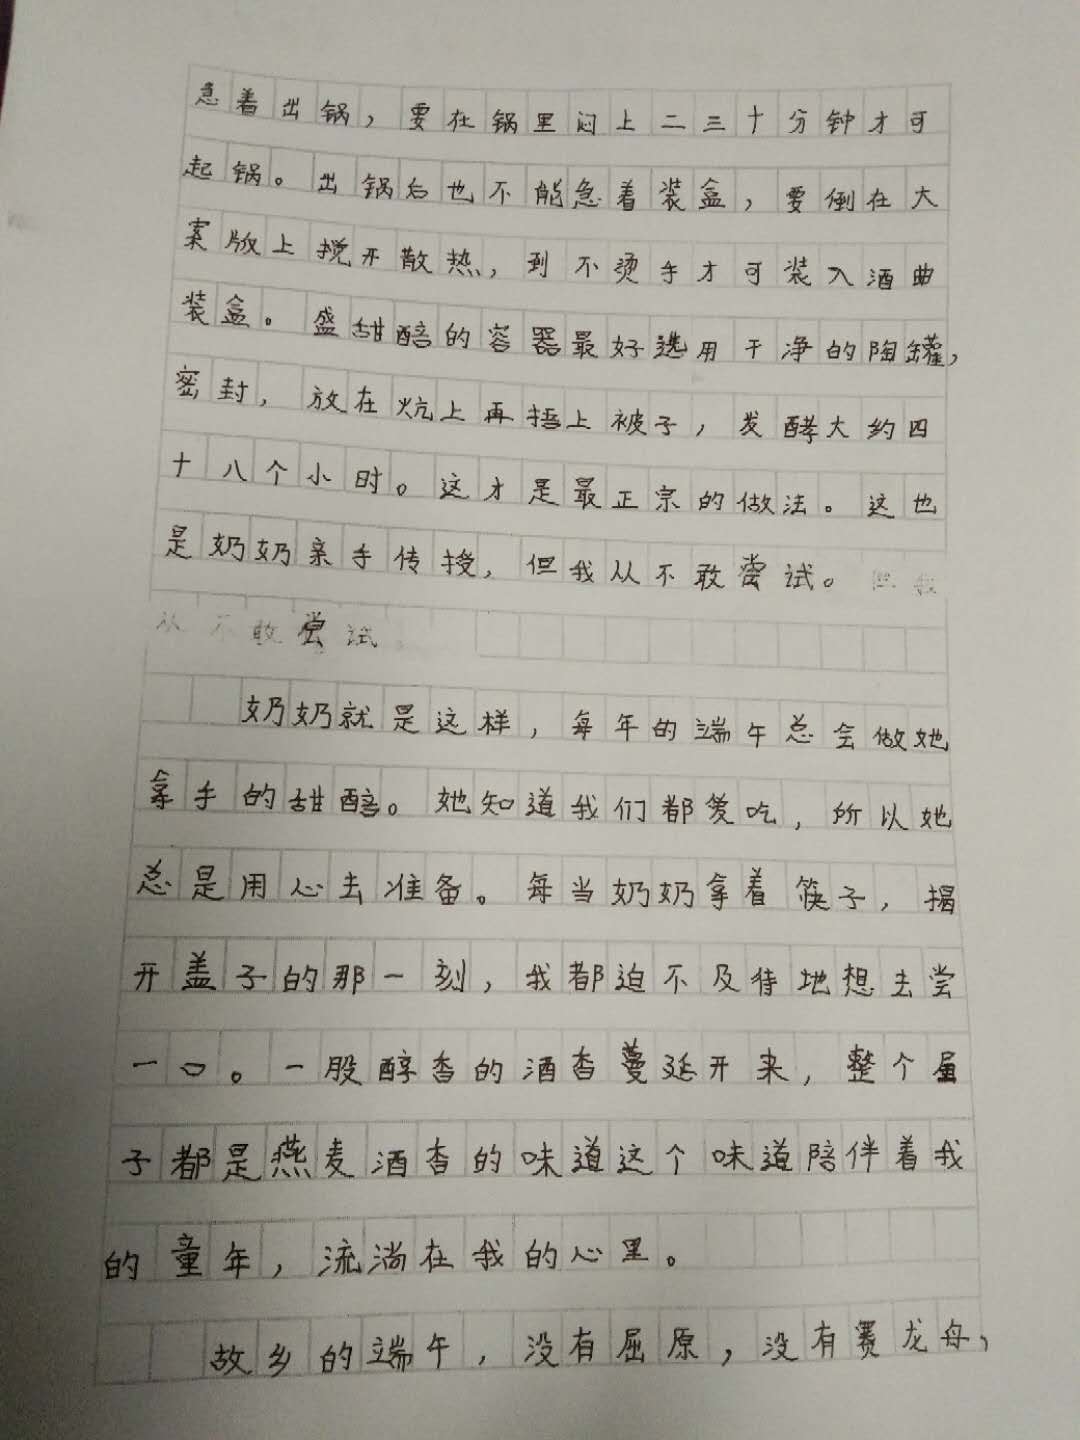 急着出锅，要在锅里闷上二三十分钟才可
起锅。出锅后也不能急着装盒，要倒在大
案版上搅开散热，到不烫手才可装入酒曲
装盒。盛甜醅的容器最好选用干净的陶罐，
密封，放在炕上再捂上被子，发酵大约四
十八个小时。这才是最正宗的做法。这也
是奶奶亲手传授，但我从不敢尝试。但我
从不敢尝试
奶奶就是这样，每年的端午总会做她
拿手的甜醅。她知道我们都爱吃，所以她
总是用心去准备。每当奶奶拿着筷子，揭
开盖子的那一刻，我都迫不及待地想去尝
一口。一股醇香的酒香蔓延开来，整个屋
子都是燕麦酒香的味道这个味道陪伴着我
的童年，流淌在我的心里。
故乡的端午，没有屈原，没有赛龙舟，